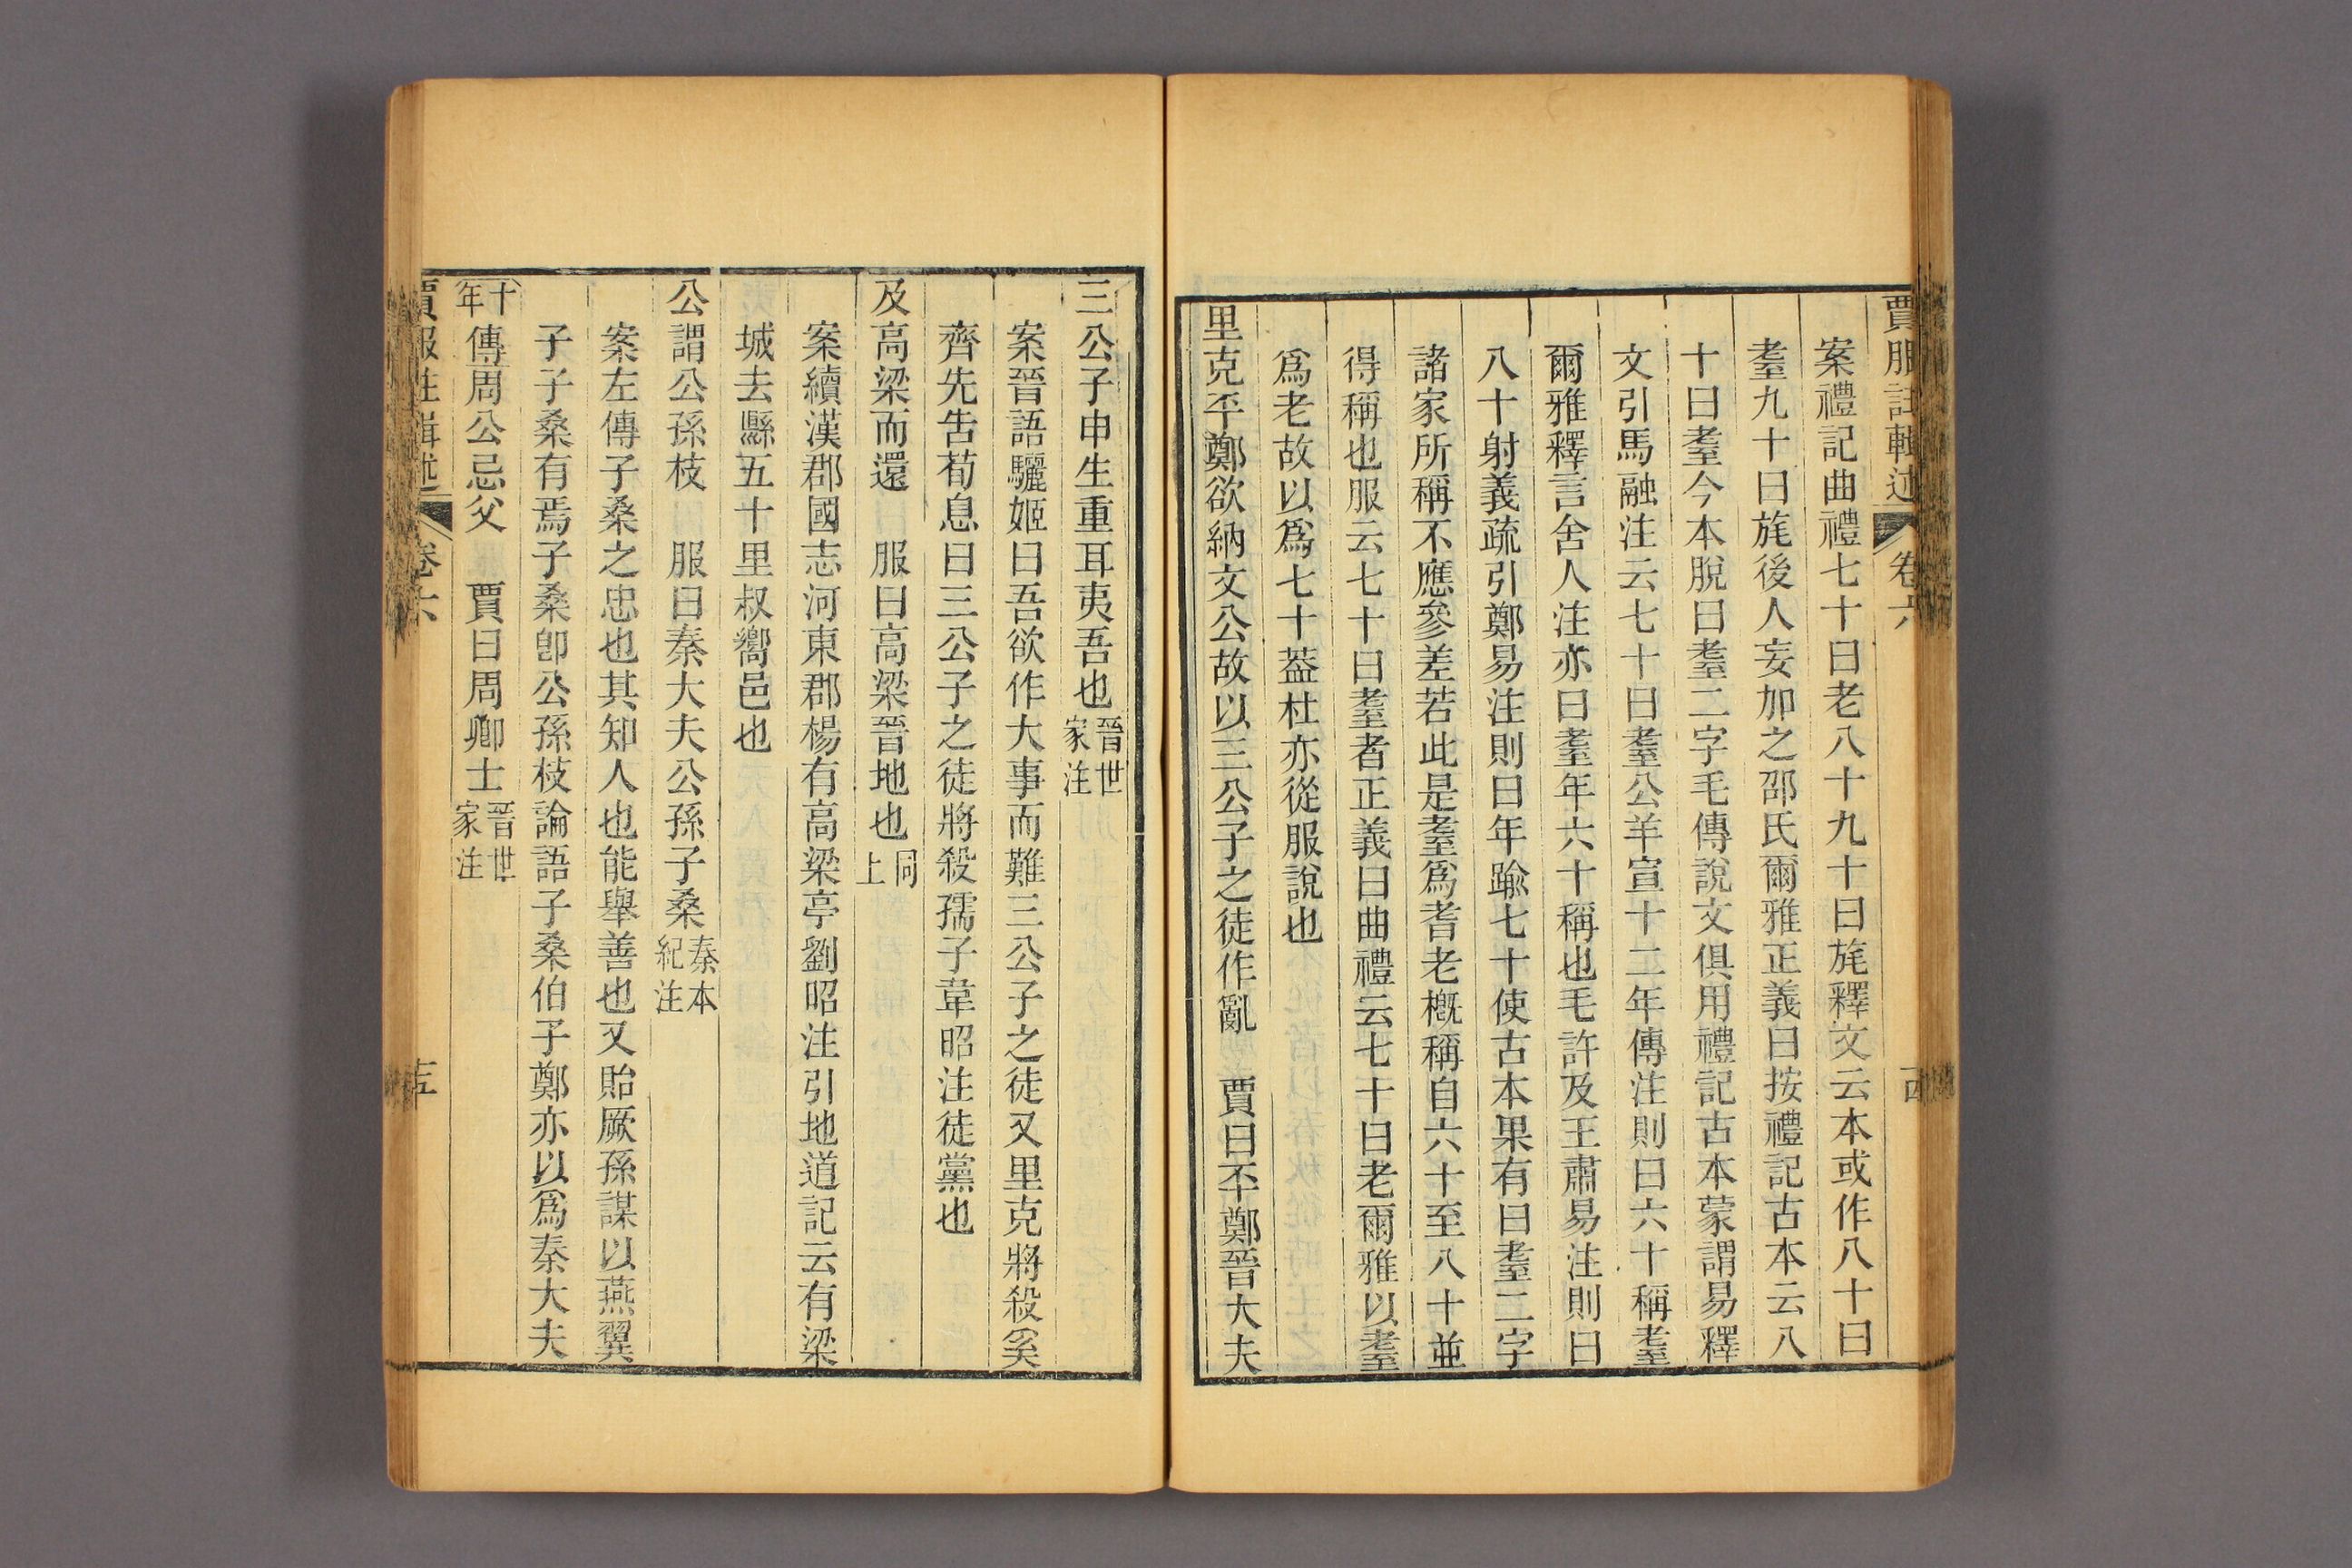 賈服註輯述 卷六
案禮記曲禮七十曰老八十九十曰旄釋文云本或作八十曰
耋九十曰旄後人妄加之邵氏爾雅正義曰按禮記古本云八
十曰耋今本脫曰耋二字毛傳說文俱用禮記古本蒙謂易釋
文引馬融注云七十曰耋公羊宣十二年傳注則曰六十稱耋
爾雅釋言舍人注亦曰耋年六十稱也毛許及王肅易注則曰
八十射義疏引鄭易注則曰年踰七十使古本果有曰耋二字
諸家所稱不應參差若此是耋爲耆老概稱自六十至八十並
得稱也服云七十曰耋者正義曰曲禮云七十曰老爾雅以耋
爲老故以爲七十葢杜亦從服說也
里克㔻鄭欲納文公故以三公子之徒作亂　賈曰㔻鄭晉大夫
三公子申生重耳夷吾也晉世家注
案晉語驪姬曰吾欲作大事而難三公子之徒又里克將殺奚
齊先告荀息曰三公子之徒將殺孺子韋昭注徒黨也
及高梁而還　服曰高梁晉地也同上
案續漢郡國志河東郡楊有高梁亭劉昭注引地道記云有梁
城去縣五十里叔嚮邑也
公謂公孫枝　服曰秦大夫公孫子桑秦本紀注
案左傳子桑之忠也其知人也能舉善也又貽厥孫謀以燕翼
子子桑有焉子桑卽公孫枝論語子桑伯子鄭亦以爲秦大夫
十年傳周公忌父　賈曰周卿士晉世家注
賈服注輯述 卷六 十五